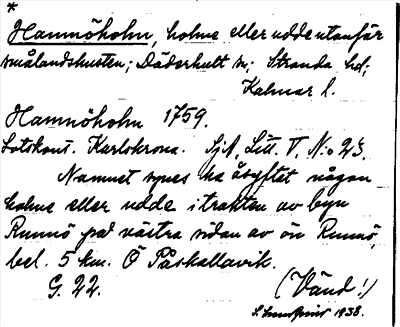 *
Hamnöholm, holme eller udde utanför
smålandskusten; Döderhult sn; Stranda hd;
Kalmar l.
Hamnöholm 1759.
Lotskont. Karlskrona. Sjk, Litt. V, N:o 23.
Namnet synes ha åsyftat någon
holme eller udde i trakten av byn
Runnö på västra sidan av ön Runnö,
bel. 5 km. Ö Påskallavik.
G. 22. (Vänd!)
1938.